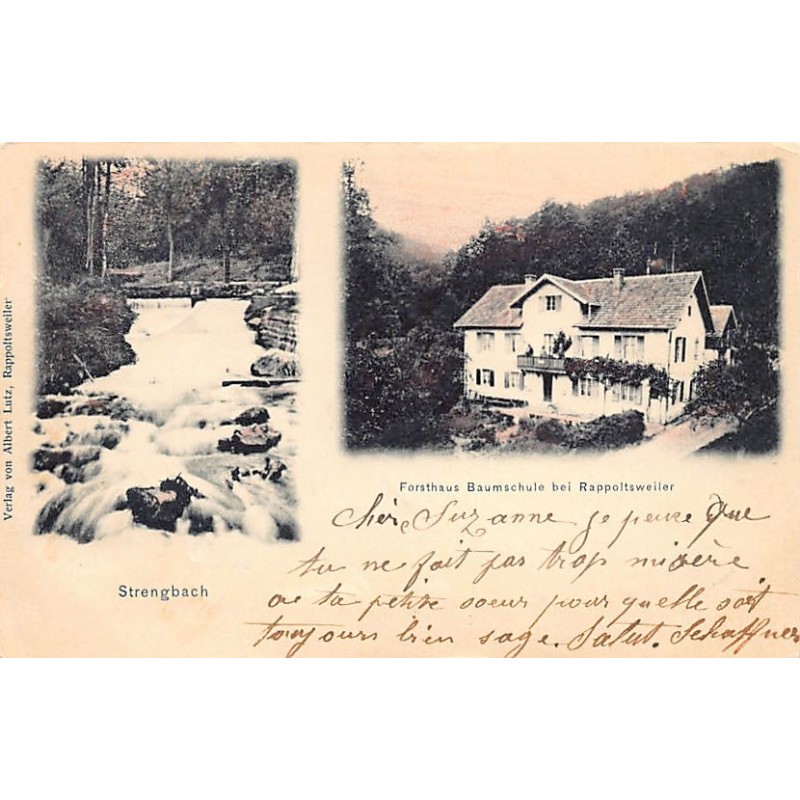 Verlag von Albert Lutz, Rappoltsweiler
Strengbach
Forsthaus Baumschule bei Rappoltsweiler
cher, Suzanne je pence que
tu ne fait pas trop misère
a ta petite soeur pour quelle soit
toujours bien sage. Salut. Schaffner